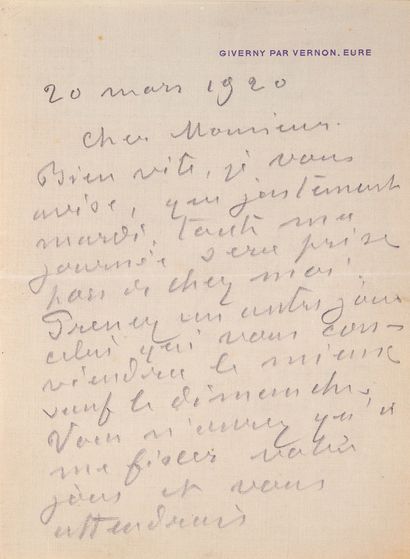 GIVERNY PAR VERNON. EURE
20 mars 1920
Cher Monsieur.
Bien vite, je vous
avise, que justement
mardi, toute ma
journée sera prise
hors de chez moi.
Prenez un autre jour
celui qui vous con-
viendra le mieux
sauf le dimanche.
Vous n'aurez qu'à
me fixer votre
jour et vous
attendrais